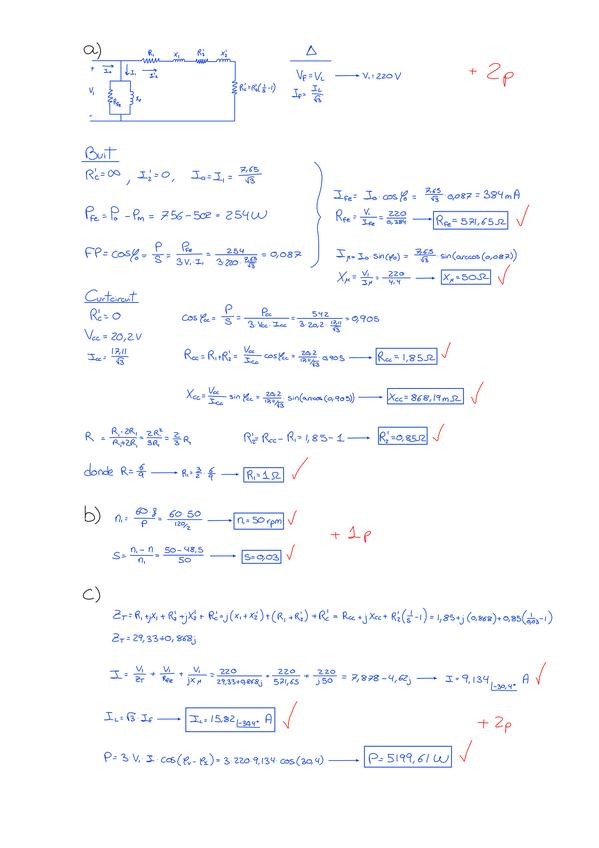 a)
R₁ X₁ R₂' X₂'
+ I₀ I₁ I₂'
V₁ R_Fe X_μ R_c' = R₂'(1/s - 1)
-
Δ
V_F = V_L ⟶ V₁ = 220 V
I_F = I_L/√3
+ 2p
Buit
R_c' = ∞, I₂' = 0, I₀ = I₁ = 7,65/√3
P_Fe = P₀ - P_m = 756 - 502 = 254 W
FP = cos φ₀ = P/S = P_Fe/(3 V₁ · I₁) = 254/(3·220·7,65/√3) = 0,087
I_Fe = I₀ · cos φ₀ = 7,65/√3 · 0,087 = 384 mA
R_Fe = V₁/I_Fe = 220/0,384 ⟶ R_Fe = 571,65 Ω ✓
I_μ = I₀ sin(φ₀) = 7,65/√3 sin(arccos(0,087))
X_μ = V₁/I_μ = 220/4,4 ⟶ X_μ = 50 Ω ✓
Curtcircuit
R_c' = 0
V_cc = 20,2 V
I_cc = 17,11/√3
cos φ_cc = P/S = P_cc/(3 V_cc · I_cc) = 542/(3·20,2·17,11/√3) = 0,905
R_cc = R₁ + R₂' = V_cc/I_cc cos φ_cc = 20,2/(17,11/√3) 0,905 ⟶ R_cc = 1,85 Ω ✓
X_cc = V_cc/I_cc sin φ_cc = 20,2/(17,11/√3) sin(arccos(0,905)) ⟶ X_cc = 868,19 mΩ ✓
R = R₁·2R₁/(R₁+2R₁) = 2R₁²/3R₁ = 2/3 R₁
R₂' = R_cc - R₁ = 1,85 - 1 ⟶ R₂' = 0,85 Ω ✓
donde R = 6/9 ⟶ R₁ = 3/2 · 6/9 ⟶ R₁ = 1 Ω ✓
b) n₁ = 60·f/P = 60·50/(120/2) ⟶ n₁ = 50 rpm ✓
S = (n₁ - n)/n₁ = (50 - 48,5)/50 ⟶ S = 0,03 ✓
+ 1p
c)
Z_T = R₁ + jX₁ + R₂' + jX₂' + R_c' = j(X₁ + X₂') + (R₁ + R₂') + R_c' = R_cc + jX_cc + R₂'(1/s - 1) = 1,85 + j(0,868) + 0,85(1/0,03 - 1)
Z_T = 29,33 + 0,868j
I = V₁/Z_T + V₁/R_Fe + V₁/jX_μ = 220/(29,33 + 0,868j) + 220/571,65 + 220/j50 = 7,878 - 4,62j ⟶ I = 9,134 |-30,4° A ✓
I_L = √3 · I_F ⟶ I_L = 15,82 |-30,4° A ✓
+ 2p
P = 3·V₁·I·cos(φ_V - φ_I) = 3·220·9,134·cos(30,4) ⟶ P = 5199,61 W ✓